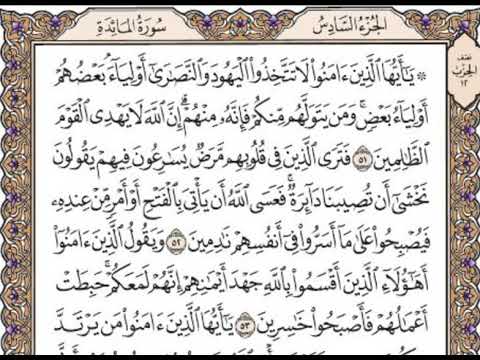 الجزء السادس
سورة المائدة
نصف
الحزب
١٢
۞ يَٰٓأَيُّهَا ٱلَّذِينَ ءَامَنُوا۟ لَا تَتَّخِذُوا۟ ٱلْيَهُودَ وَٱلنَّصَٰرَىٰٓ أَوْلِيَآءَ ۘ بَعْضُهُمْ
أَوْلِيَآءُ بَعْضٍ ۚ وَمَن يَتَوَلَّهُم مِّنكُمْ فَإِنَّهُۥ مِنْهُمْ ۗ إِنَّ ٱللَّهَ لَا يَهْدِى ٱلْقَوْمَ
ٱلظَّٰلِمِينَ ٥١ فَتَرَى ٱلَّذِينَ فِى قُلُوبِهِم مَّرَضٌ يُسَٰرِعُونَ فِيهِمْ يَقُولُونَ
نَخْشَىٰٓ أَن تُصِيبَنَا دَآئِرَةٌ ۚ فَعَسَى ٱللَّهُ أَن يَأْتِىَ بِٱلْفَتْحِ أَوْ أَمْرٍ مِّنْ عِندِهِۦ
فَيُصْبِحُوا۟ عَلَىٰ مَآ أَسَرُّوا۟ فِىٓ أَنفُسِهِمْ نَٰدِمِينَ ٥٢ وَيَقُولُ ٱلَّذِينَ ءَامَنُوٓا۟
أَهَٰٓؤُلَآءِ ٱلَّذِينَ أَقْسَمُوا۟ بِٱللَّهِ جَهْدَ أَيْمَٰنِهِمْ ۙ إِنَّهُمْ لَمَعَكُمْ ۚ حَبِطَتْ
أَعْمَٰلُهُمْ فَأَصْبَحُوا۟ خَٰسِرِينَ ٥٣ يَٰٓأَيُّهَا ٱلَّذِينَ ءَامَنُوا۟ مَن يَرْتَدَّ